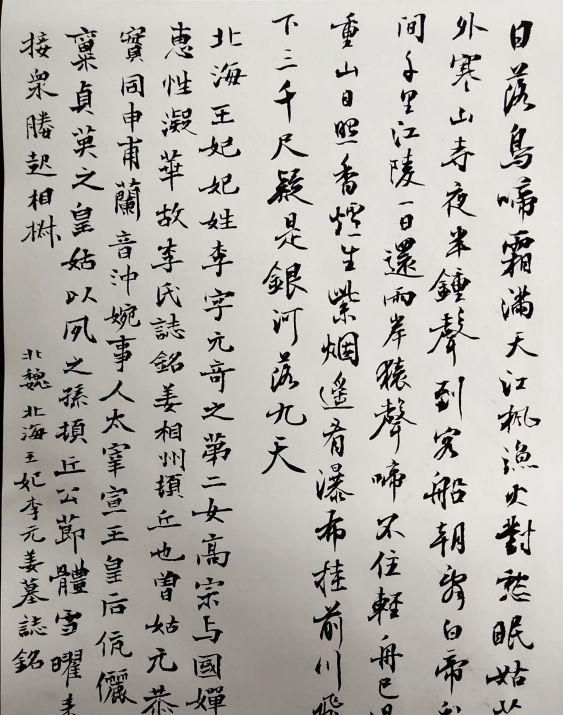 日落鳥啼霜滿天江楓漁火對愁眠姑
外寒山寺夜半鍾聲到客船朝辭白帝
間千里江陵一日還兩岸猿聲啼不住輕舟已
重山日照香爐生紫烟遥看瀑布挂前川飛
下三千尺疑是銀河落九天
北海王妃妃姓李字元奇之第二女高宗与國嬋
恵性凝華故李氏誌銘姜相州頓丘也曾姑元恭
寶同申甫蘭音沖婉事人太宰宣王皇后伉儷
稟貞英之皇姑以夙之孫頓丘公節體雪曜
接衆勝起相樹
北魏北海王妃李元姜墓誌銘